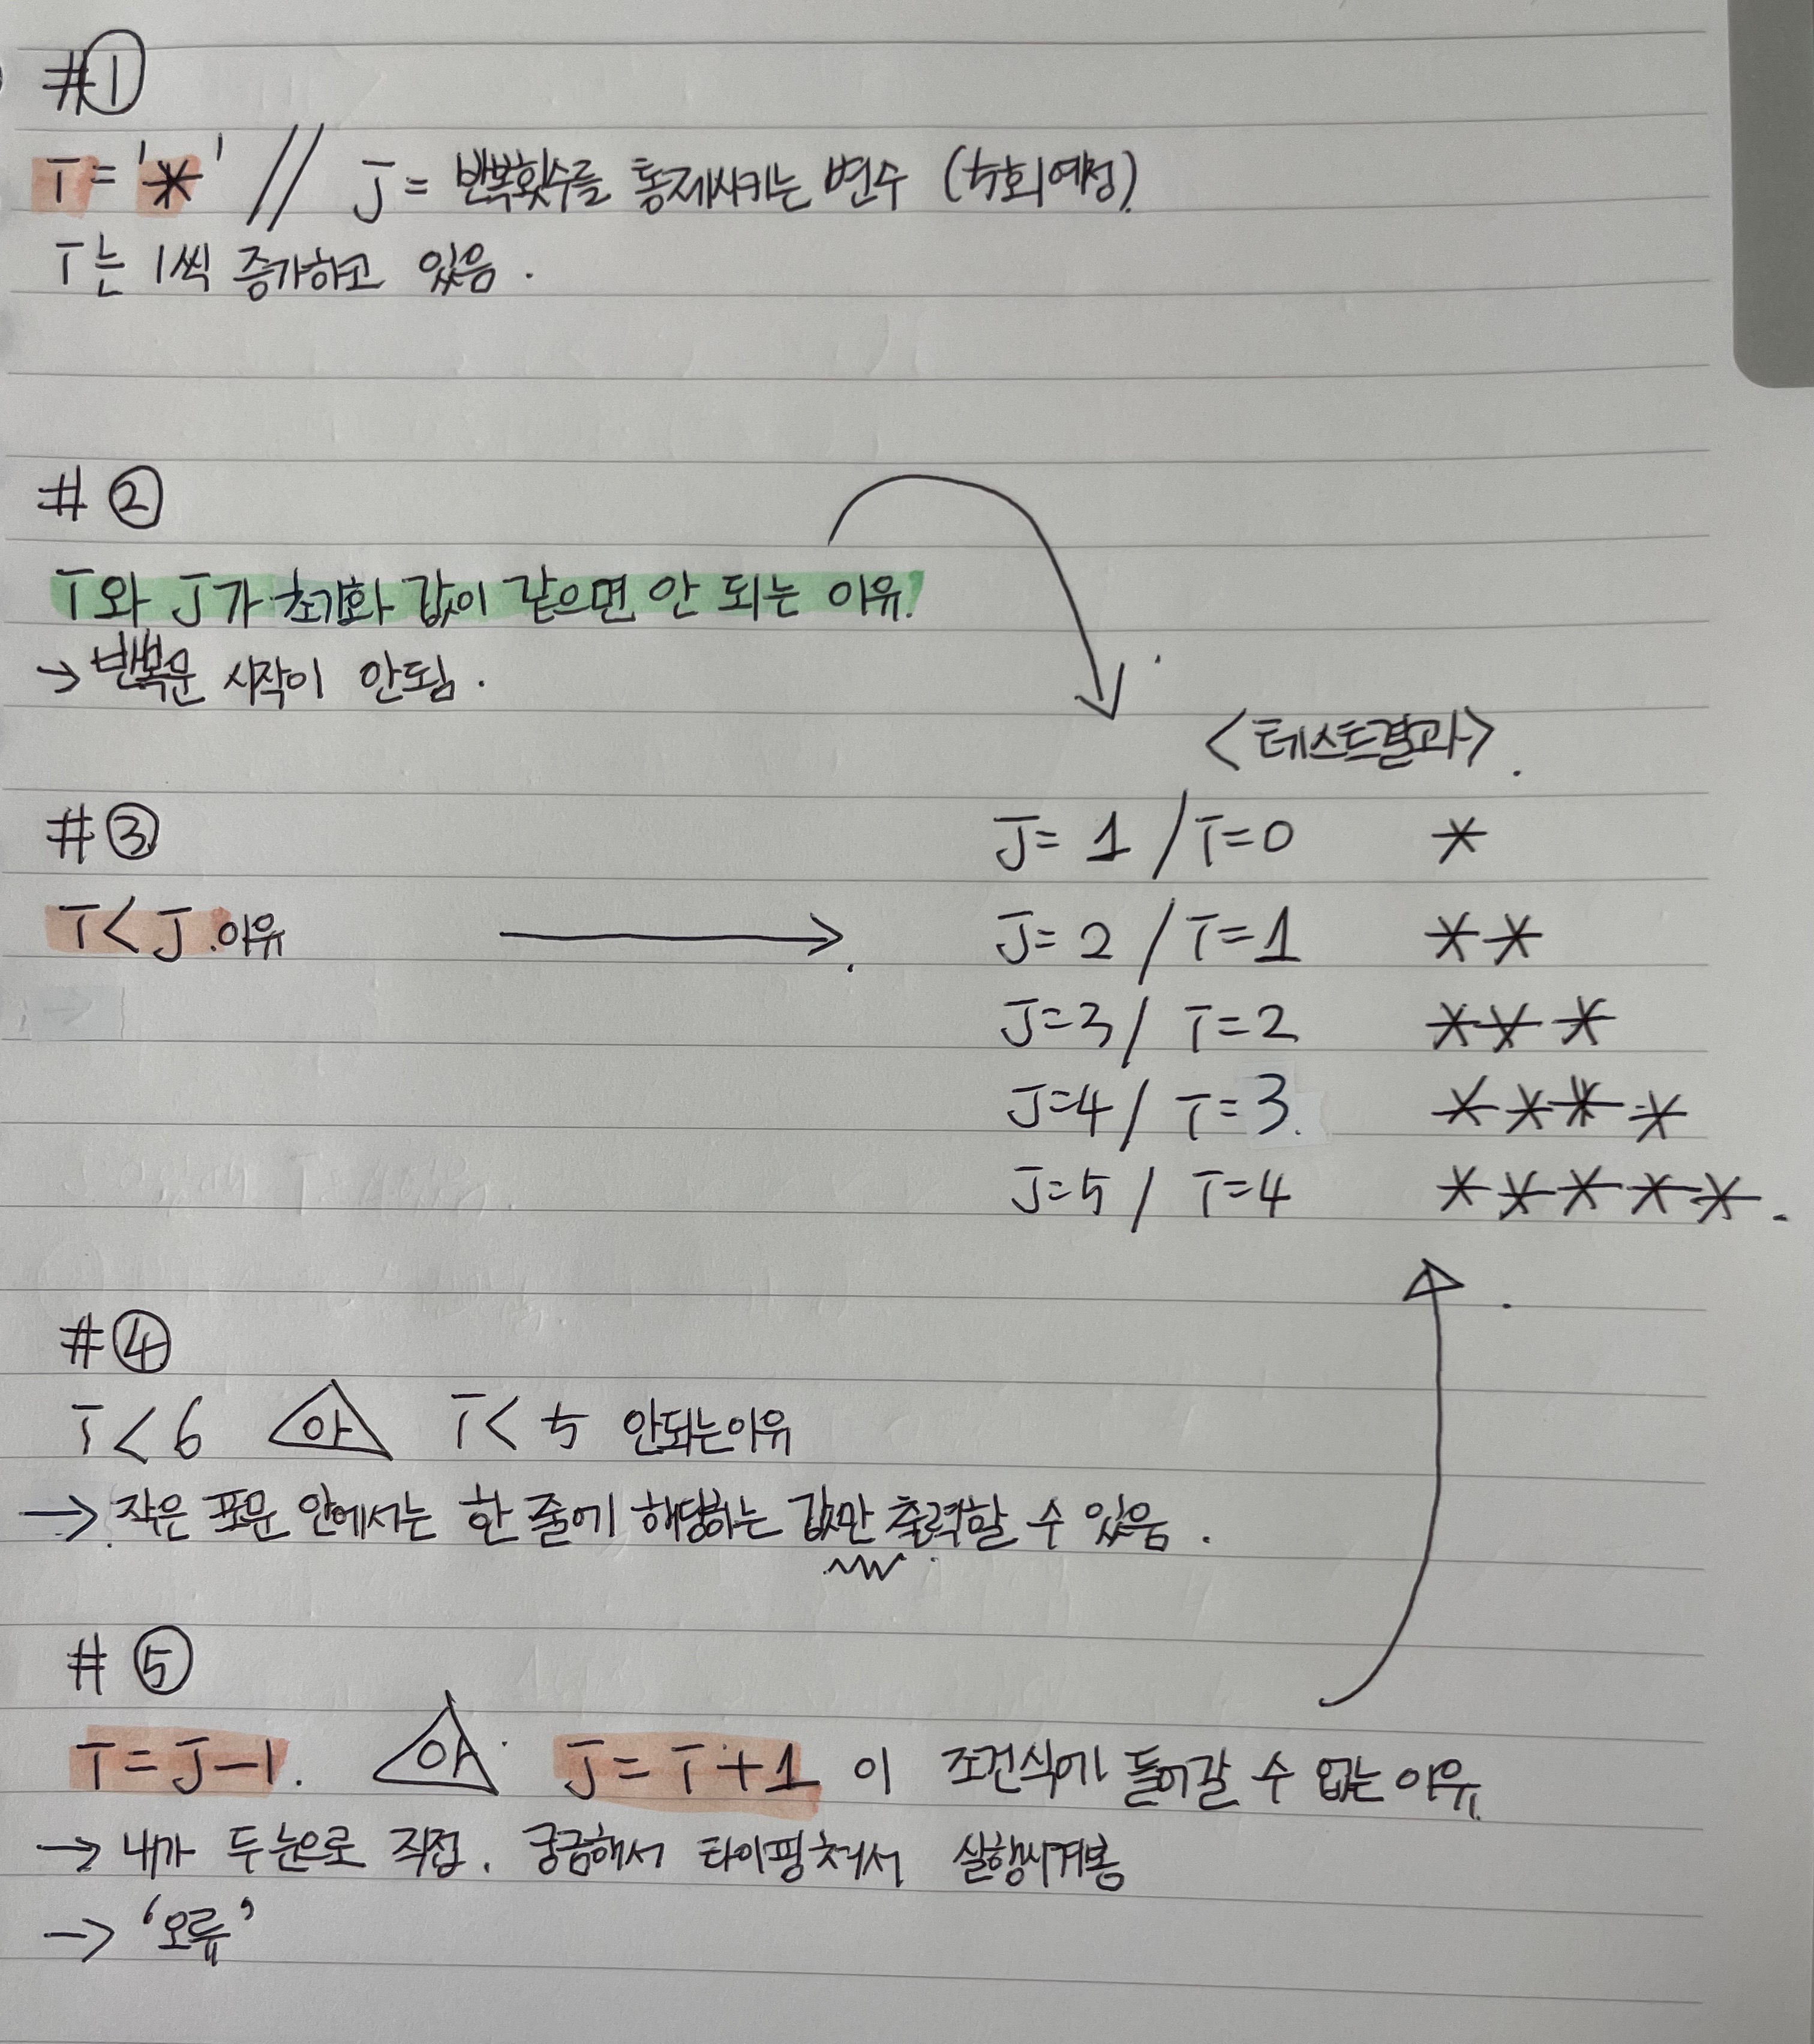 #①
T = '*' // J = 반복횟수를 통제시키는 변수 (5회예정)
T는 1씩 증가하고 있음.
#②
T와 J가 초기화 값이 같으면 안 되는 이유!
→ 반복문 시작이 안됨.
<테스트결과>
#③
J= 1 / T=0 *
T< J 이유
J= 2 / T=1 **
J=3 / T=2 ***
J=4 / T=3. ****
J=5 / T=4 *****
#④
T < 6 아 T < 5 안되는이유
→ 작은 포문 안에서는 한 줄에 해당하는 값만 출력할 수 있음.
#⑤
T = J-1. 아 J = T+1 이 조건식에 들어갈 수 없는 이유
→ 내가 두눈으로 직접. 궁금해서 타이핑쳐서 실행시켜봄
→ '오류'